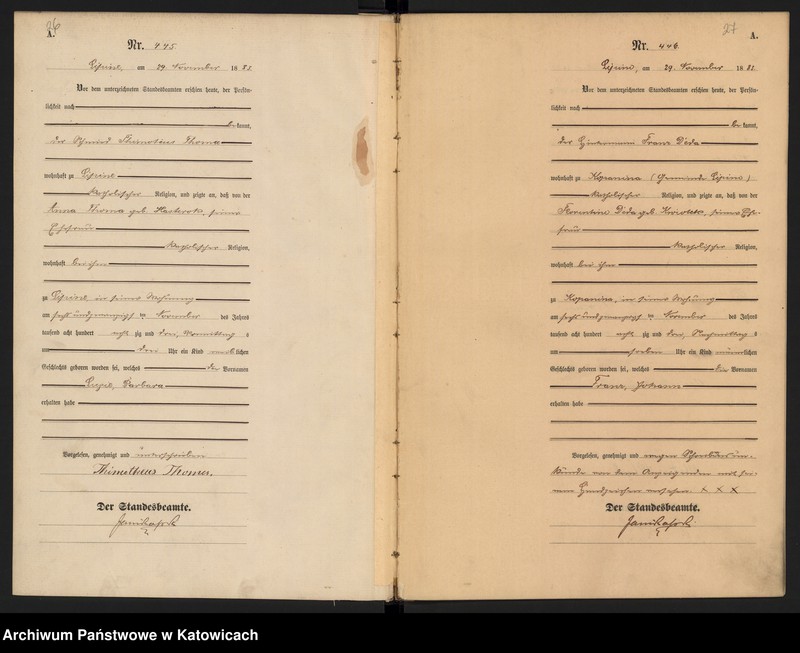 26
A.
Nr. 445
am 29 November 1883
Vor dem unterzeichneten Standesbeamten erschien heute, der Persön-
lichkeit nach
be kannt,
der Schmied Thimotheus Thoma
wohnhaft zu
katholischer Religion, und zeigte an, daß von der
Anna Thoma geb. seiner
Ehefrau
katholischer Religion,
wohnhaft bei ihm
zu in seiner Wohnung
am sechs und zwanzigsten November des Jahres
tausend acht hundert acht zig und drei, Vormittag s
um drei Uhr ein Kind weiblichen
Geschlechts geboren worden sei, welches die Vornamen
Barbara
erhalten habe
Vorgelesen, genehmigt und unterschrieben
Thimotheus Thoma.
Der Standesbeamte.
27
A.
Nr. 446
am 29. November 1883
Vor dem unterzeichneten Standesbeamten erschien heute, der Persön-
lichkeit nach
be kannt,
der Franz Dida
wohnhaft zu Kopanina (Gemeinde
katholischer Religion, und zeigte an, daß von der
Florentine Dida geb. seiner Ehe-
frau
katholischer Religion,
wohnhaft bei ihm
zu Kopanina, in seiner Wohnung
am sechs und zwanzigsten November des Jahres
tausend acht hundert acht zig und drei, Nachmittag s
um sieben Uhr ein Kind männlichen
Geschlechts geboren worden sei, welches die Vornamen
Franz, Johann
erhalten habe
Vorgelesen, genehmigt und wegen Schreibens un-
kunde von dem Anzeigenden mit sei-
nem Handzeichen versehen. x x x
Der Standesbeamte.
Archiwum Państwowe w Katowicach